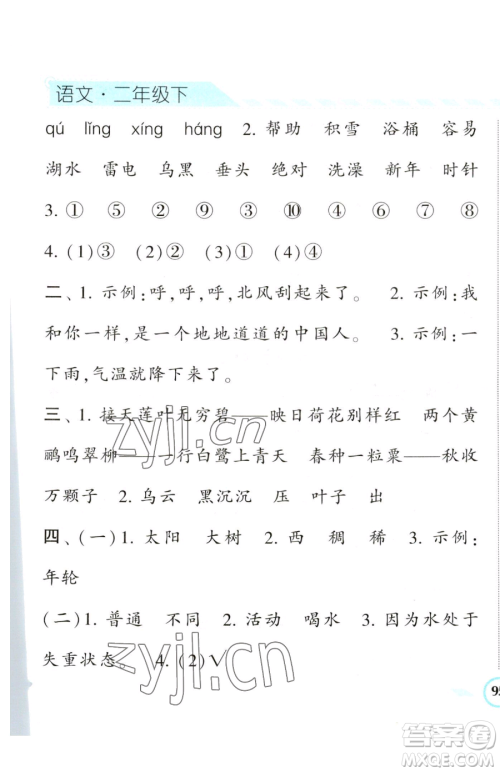 语文·二年级下
qú lǐng xíng háng 2. 帮助 积雪 浴桶 容易
湖水 雷电 乌黑 垂头 绝对 洗澡 新年 时针
3. ① ⑤ ② ⑨ ③ ⑩ ④ ⑥ ⑦ ⑧
4. (1)③ (2)② (3)① (4)④
二、1. 示例:呼,呼,呼,北风刮起来了。 2. 示例:我
和你一样,是一个地地道道的中国人。 3. 示例:一
下雨,气温就降下来了。
三、1. 接天莲叶无穷碧——映日荷花别样红 两个黄
鹂鸣翠柳——一行白鹭上青天 春种一粒粟——秋收
万颗子 2. 乌云 黑沉沉 压 叶子 出
四、(一)1. 太阳 大树 2. 西 稠 稀 3. 示例:
年轮
(二)1. 普通 不同 2. 活动 喝水 3. 因为水处于
失重状态。 4. (2)√
95
zyjl.cn
zyjl.cn
答案圈
MXQE.COM